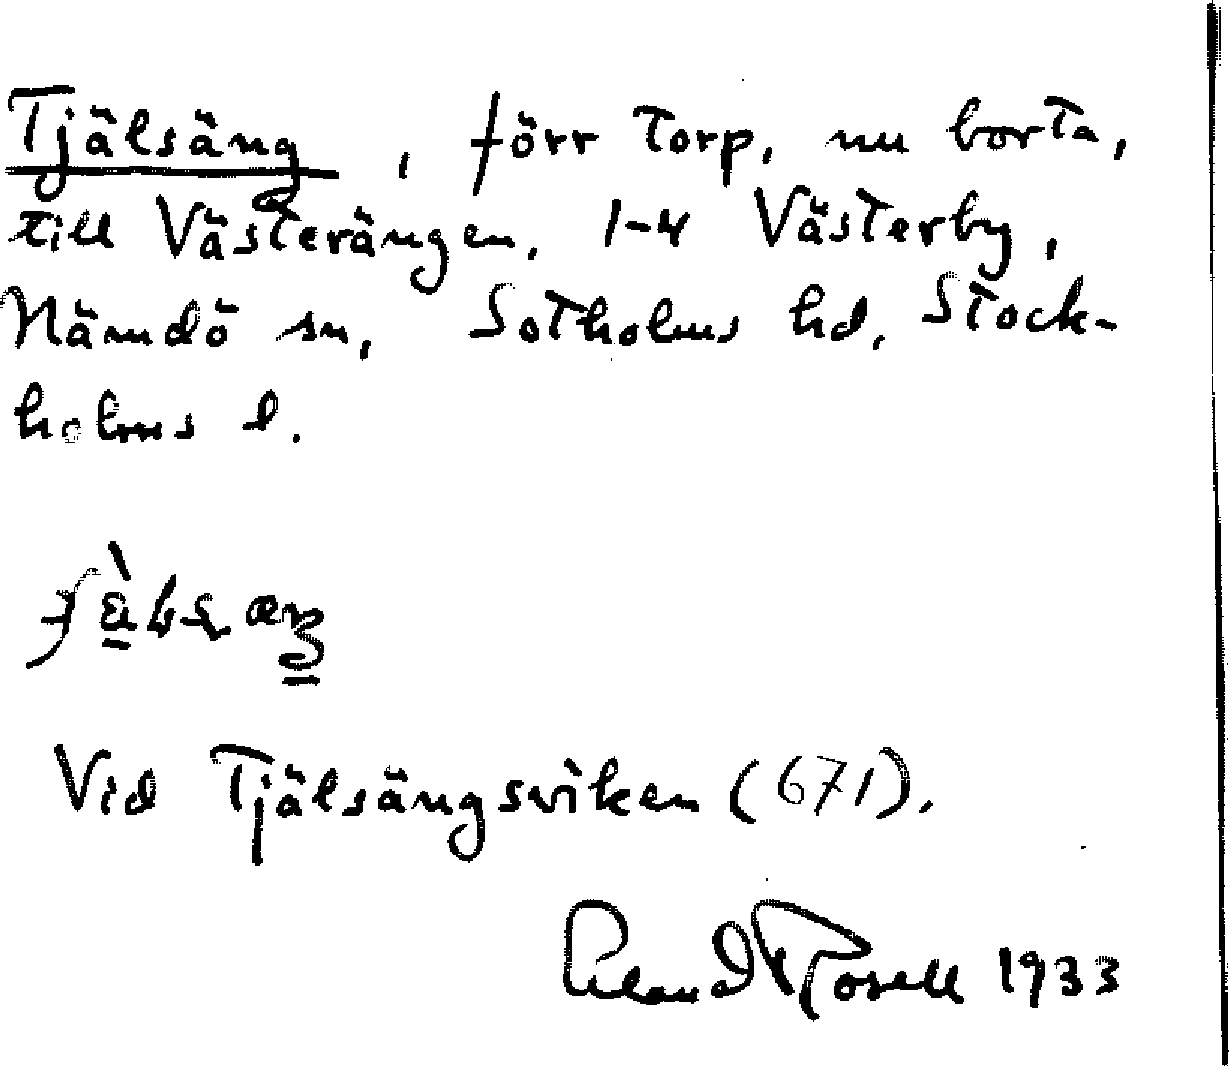 Tjälsäng, förr torp, nu borta,
till Västerängen, 1-4 Västerby,
Nämdö sn, Sotholms hd, Stock-
holms l.
Vid Tjälsängsviken (671).
Rosell 1933